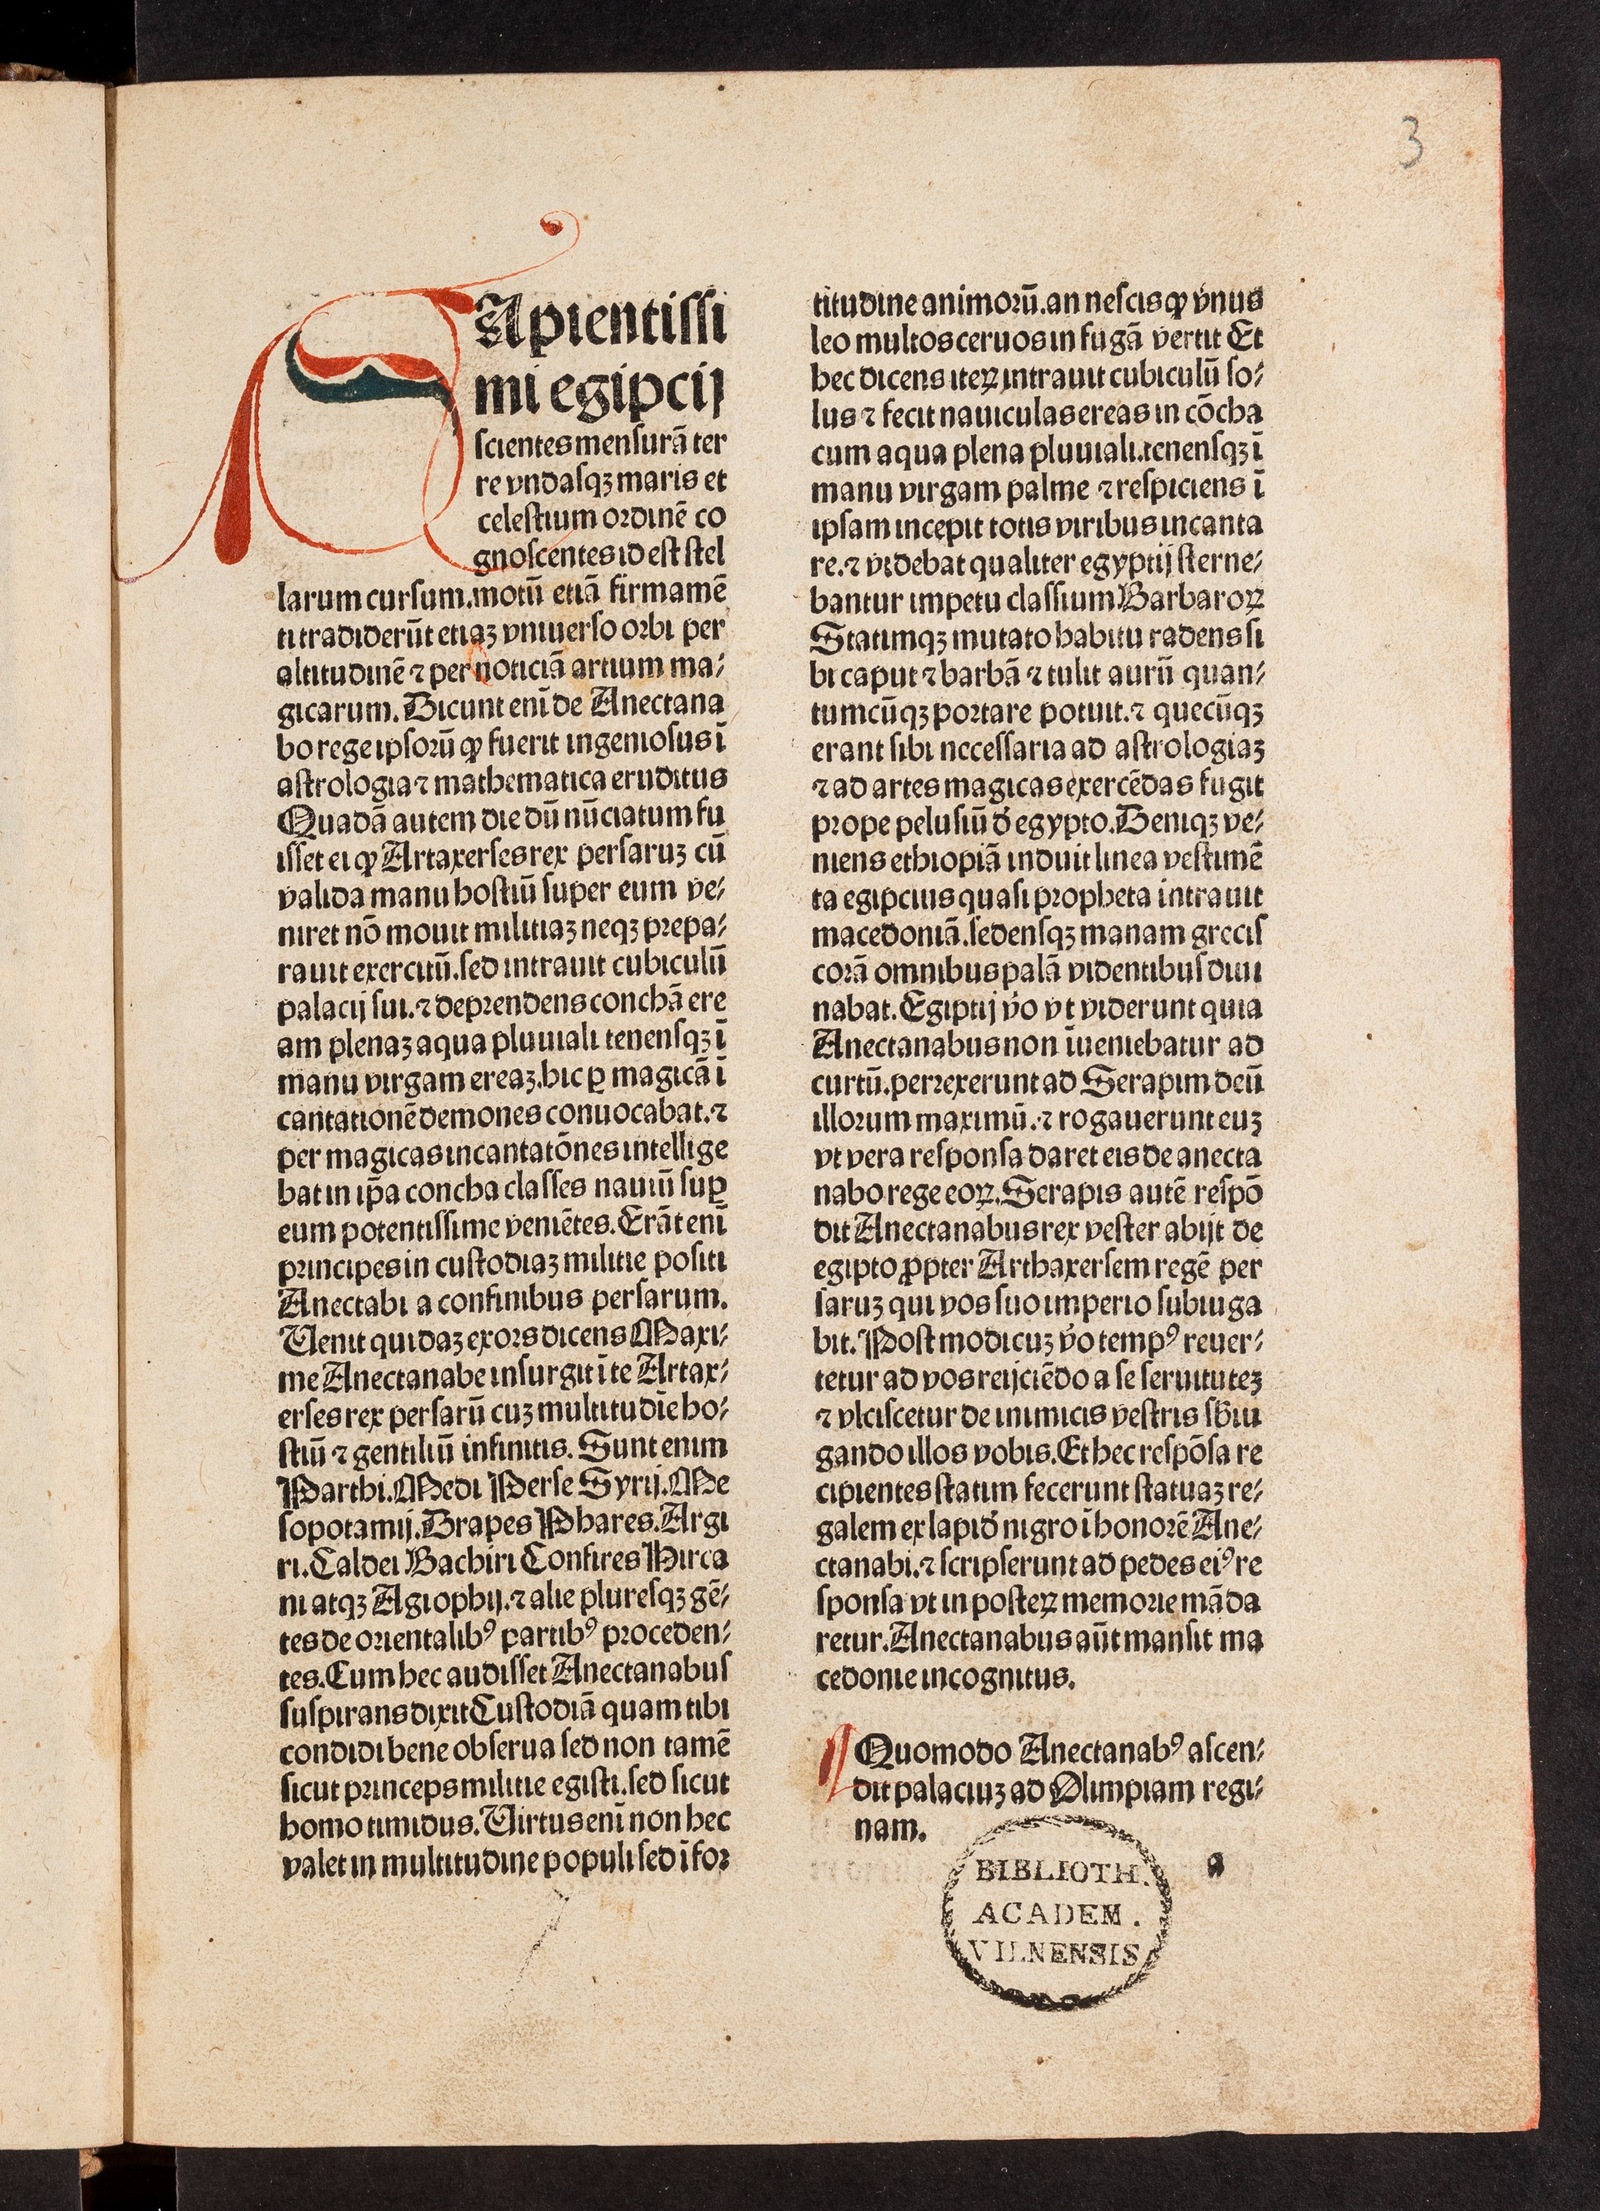 3
SApientissi
mi egipcij
scientes mensurā ter
re vndasqꝫ maris et
celestium ordinē co
gnoscentes id est stel
larum cursum.motū etiā firmamē
ti tradiderūt etiaꝫ vniuerso orbi per
altitudinē ⁊ per noticiā artium ma⸗
gicarum. Dicunt enī de Anectana
bo rege ipsorū ꝙ fuerit ingeniosus ī
astrologia ⁊ mathematica eruditus
Quadā autem die dū nūciatum fu
isset ei ꝙ Artaxerses rex persaruꝫ cū
valida manu hostiū super eum ve⸗
niret nō mouit militiaꝫ neqꝫ prepa⸗
rauit exercitū.sed intrauit cubiculū
palacij sui.⁊ deprendens conchā ere
am plenaꝫ aqua pluuiali tenensqꝫ ī
manu virgam ereaꝫ.hic ꝑ magicā ī
cantationē demones conuocabat.⁊
per magicas incantatōnes intellige
bat in ip̄a concha classes nauiū suꝑ
eum potentissime veniētes. Erāt enī
principes in custodiaꝫ militie positi
Anectabi a confinibus persarum.
Uenit quidaꝫ ex ors dicens Maxi⸗
me Anectanabe insurgit ī te Artax⸗
erses rex persarū cuꝫ multitudīe ho⸗
stiū ⁊ gentiliū infinitis. Sunt enim
Parthi.Medi Perse Syrij.Me
sopotamij.Drapes Phares.Argi
ri.Caldei Bachiri Confires Hirca
ni atqꝫ Agiophij.⁊ alie pluresqꝫ gē⸗
tes de orientalibꝰ partibꝰ proceden⸗
tes.Cum hec audisset Anectanabus
suspirans dixit Custodiā quam tibi
condidi bene obserua sed non tamē
sicut princeps militie egisti.sed sicut
homo timidus. Uirtus enī non hec
valet in multitudine populi sed ī for
titudine animorū.an nescis ꝙ vnus
leo multos ceruos in fugā vertit Et
hec dicens iteꝝ intrauit cubiculū so⸗
lus ⁊ fecit nauiculas ereas in cōcha
cum aqua plena pluuiali.tenensqꝫ ī
manu virgam palme ⁊ respiciens ī
ipsam incepit totis viribus incanta
re.⁊ videbat qualiter egyptij sterne⸗
bantur impetu classium Barbaroꝝ
Statimqꝫ mutato habitu radens si
bi caput ⁊ barbā ⁊ tulit aurū quan⸗
tumcūqꝫ portare potuit.⁊ quecūqꝫ
erant sibi necessaria ad astrologiaꝫ
⁊ ad artes magicas exercēdas fugit
prope pelusiū đ egypto.Deniqꝫ ve⸗
niens ethiopiā induit linea vestimē
ta egipcius quasi propheta intrauit
macedoniā.sedensqꝫ manam grecis
corā omnibus palā videntibus diui
nabat.Egiptij v̉o vt viderunt quia
Anectanabus non īueniebatur ad
curtū.perrexerunt ad Serapim deū
illorum maximū.⁊ rogauerunt euꝫ
vt vera responsa daret eis de anecta
nabo rege eoꝝ.Serapis autē respō
dit Anectanabus rex vester abijt de
egipto ꝓpter Arthaxersem regē per
saruꝫ qui vos suo imperio subiuga
bit. Post modicuꝫ v̉o tempꝰ reuer⸗
tetur ad vos reijciēdo a se seruituteꝫ
⁊ vlciscetur de inimicis vestris sb̄iu
gando illos vobis.Et hec respōsa re
cipientes statim fecerunt statuaꝫ re⸗
galem ex lapiđ nigro ī honorē Ane⸗
ctanabi.⁊ scripserunt ad pedes eiꝰ re
sponsa vt in posteꝝ memorie māda
retur.Anectanabus aūt mansit ma
cedonie incognitus.
¶ Quomodo Anectanabꝰ ascen⸗
dit palaciuꝫ ad Olimpiam regi⸗
nam.
a
BIBLIOTH.
ACADEM.
VILNENSIS